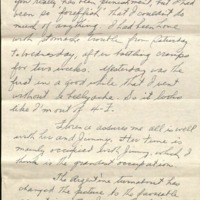 you really has been punishment, but I had
been so "forceful" that I couldn't do
much of anything. I had been home
with stomach trouble from Saturday
to Wednesday, after bottling scraps
for two weeks. Yesterday was the
first in a good while that I was
without So it looks
like I'm out of 4-F.
Florence assures me all is well
with her and Jimmy. Her time is
mainly occupied with Jimmy, which I
think is the grandest occupation.
The Argentine turnabout has
changed the picture to the favorable